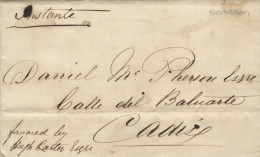 Instante
Daniel Mc Pherson Esqre
Calle del Baluarte
Cadiz
favored by
Hugh Carter Esqre